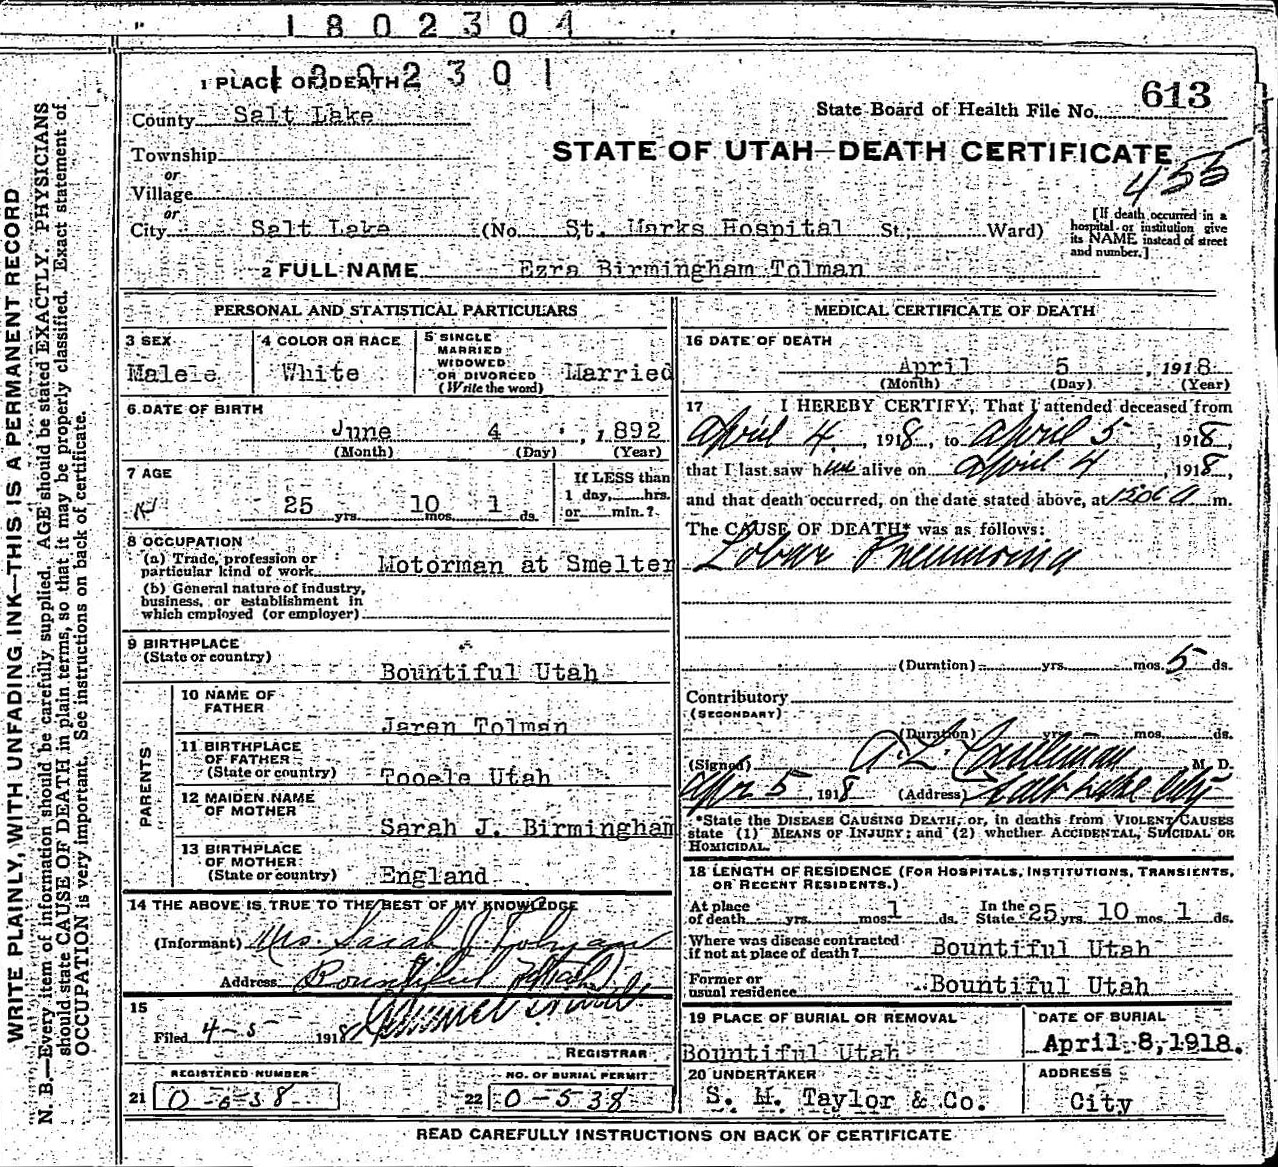 1802304
1302301
1 PLACE OF DEATH
County Salt Lake
State Board of Health File No. 613
Township
or
Village
or
STATE OF UTAH—DEATH CERTIFICATE
455
City Salt Lake (No. St. Marks Hospital St.; Ward)
[If death occurred in a
hospital or institution give
its NAME instead of street
and number.]
2 FULL NAME Ezra Birmingham Tolman
PERSONAL AND STATISTICAL PARTICULARS
3 SEX
Malele
4 COLOR OR RACE
White
5 SINGLE
MARRIED
WIDOWED
OR DIVORCED
(Write the word)
Married
6 DATE OF BIRTH
June 4, 1892
(Month) (Day) (Year)
7 AGE
25 yrs. 10 mos. 1 ds.
If LESS than
1 day, hrs.
or min.?
8 OCCUPATION
(a) Trade, profession or
particular kind of work Motorman at Smelter
(b) General nature of industry,
business, or establishment in
which employed (or employer)
9 BIRTHPLACE
(State or country)
Bountiful Utah
PARENTS
10 NAME OF
FATHER
Jaren Tolman
11 BIRTHPLACE
OF FATHER
(State or country) Tooele Utah
12 MAIDEN NAME
OF MOTHER
Sarah J. Birmingham
13 BIRTHPLACE
OF MOTHER
(State or country) England
14 THE ABOVE IS TRUE TO THE BEST OF MY KNOWLEDGE
(Informant) Mrs. Sarah J Tolman
Address Bountiful Utah
15
Filed 4-5- 1918
REGISTRAR
REGISTERED NUMBER
21 0-638
NO. OF BURIAL PERMIT
22 0-538
MEDICAL CERTIFICATE OF DEATH
16 DATE OF DEATH
April 5, 1918
(Month) (Day) (Year)
17 I HEREBY CERTIFY, That I attended deceased from
April 4, 1918, to April 5, 1918,
that I last saw him alive on April 4, 1918,
and that death occurred, on the date stated above, at m.
The CAUSE OF DEATH* was as follows:
Lobar Pneumonia
(Duration) yrs. mos. 5 ds.
Contributory
(SECONDARY)
(Duration) yrs. mos. ds.
(Signed) A. L. M. D.
Apr 5, 1918 (Address) Salt Lake City
*State the DISEASE CAUSING DEATH, or, in deaths from VIOLENT CAUSES
state (1) MEANS OF INJURY; and (2) whether ACCIDENTAL, SUICIDAL OR
HOMICIDAL.
18 LENGTH OF RESIDENCE (FOR HOSPITALS, INSTITUTIONS, TRANSIENTS,
OR RECENT RESIDENTS.)
At place
of death yrs. mos. 1 ds. In the
State 25 yrs. 10 mos. 1 ds.
Where was disease contracted
if not at place of death? Bountiful Utah
Former or
usual residence Bountiful Utah
19 PLACE OF BURIAL OR REMOVAL
Bountiful Utah
DATE OF BURIAL
April 8, 1918.
20 UNDERTAKER
S. M. Taylor & Co.
ADDRESS
City
READ CAREFULLY INSTRUCTIONS ON BACK OF CERTIFICATE
WRITE PLAINLY, WITH UNFADING INK—THIS IS A PERMANENT RECORD
N. B.—Every item of information should be carefully supplied. AGE should be stated EXACTLY. PHYSICIANS
should state CAUSE OF DEATH in plain terms, so that it may be properly classified. Exact statement of
OCCUPATION is very important. See instructions on back of certificate.